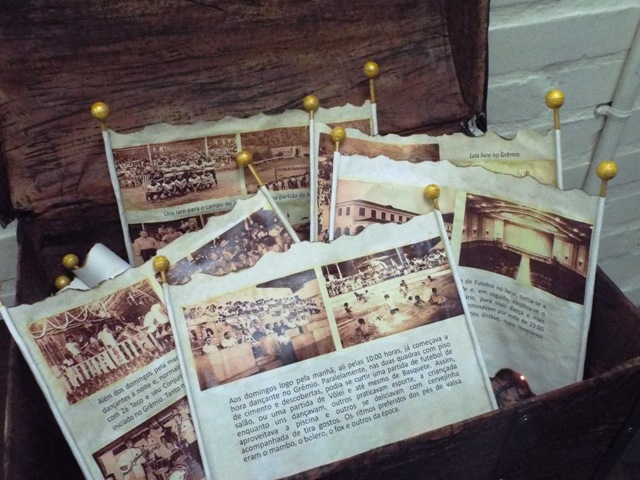 Luta livre no Grêmio
Uns iam para o campo do
partida de
de Futebol no Jacuí, curtia-se a
e em seguida, escolhia-se o
para mais dança e mais
terminavam por volta de 23:00
ônibus,
Além dos domingos pela
dançantes à noite e,
com Zé Teco e seu Conjunto
iniciado no Grêmio. Tanto
Aos domingos logo pela manhã, ali pelas 10:00 horas, já começava a
hora dançante no Grêmio. Paralelamente, nas duas quadras com piso
de cimento e descobertas, podia se curtir uma partida de futebol de
salão, ou uma partida de Vôlei e até mesmo de Basquete. Assim,
enquanto uns dançavam, outros praticavam esporte, a criançada
aproveitava a piscina e outros se deliciavam com cervejinha
acompanhada de tira gostos. Os ritmos preferidos dos pés de valsa
eram o mambo, o bolero, o fox e outros da época.